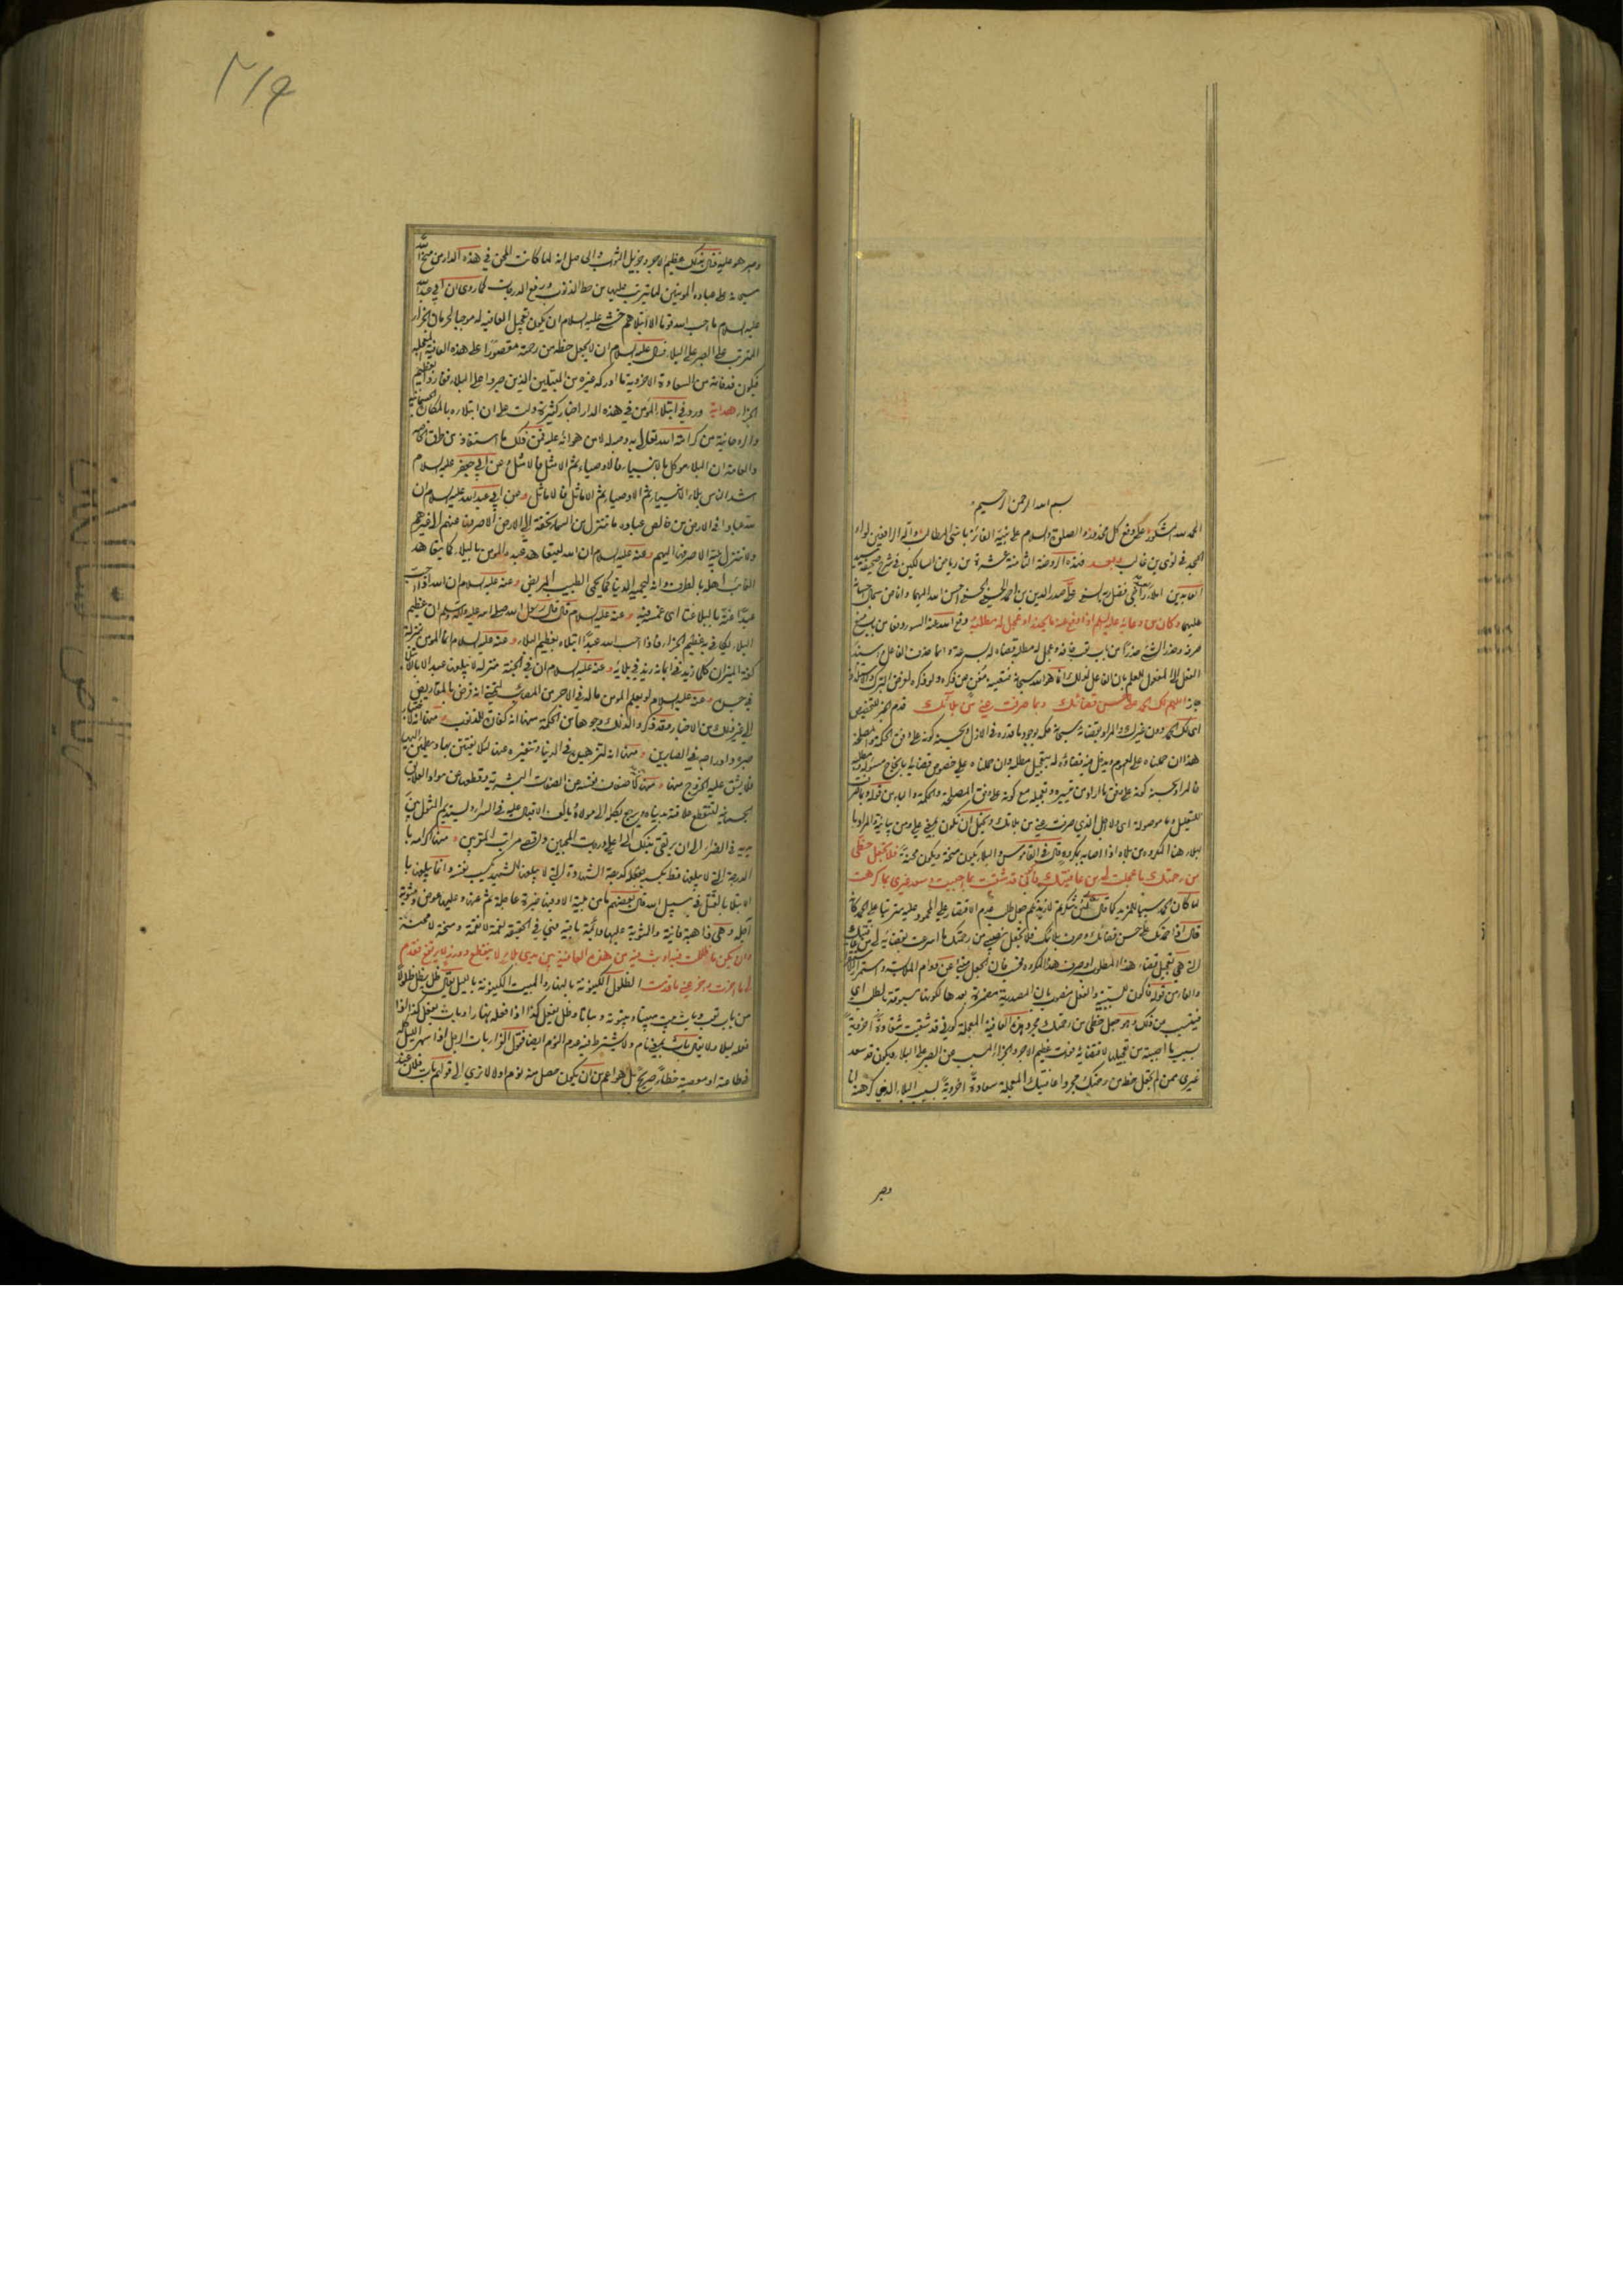 بسم الله الرحمن الرحيم
الحمد لله المشكور على دفع كل محذور والصلوة والسلام على نبيه الفائز باسنى المطالب وآله الرافعين لواء
المجد في لوى بن غالب وبعد فهذه الروضة الثامنة عشرة من رياض السالكين في شرح صحيفة سيد
العابدين املاء راجي فضل ربه السنى علي صدر الدين بن احمد الحسيني الحسني احسن الله اليهما وافاض سجال احسانه
عليهما وكان من دعائه عليه السلم اذا دفع عنه ما يحذر او عجل له مطلبه دفع الله عنه السوء دفعا من باب منع
صرفه وحذر الشئ حذرا من باب تعب خافه وعجل له مطلبه قضاه له بسرعة وانما حذف الفاعل واسند
الفعل الى المفعول للعلم بان الفاعل لذلك انما هو الله سبحانه فتعينه مغن عن ذكره
اللهم لك الحمد على حسن قضائك وبما صرفت عني من بلائك قدم الخبر للتخصيص
اى لك الحمد دون غيرك والمراد بقضائه سبحانه حكمه بوجود ما قدره في الازل وبحسنه كونه على وفق الحكمة والمصلحة
هذا ان حملناه على العموم ويدخل فيه قضاؤه له بتعجيل مطلبه وان حملناه على خصوص قضائه بانجاح مسئوله
فالمراد بحسنه كونه على وفق ما اراد من تيسيره وتعجيله مع كونه على وفق المصلحة والحكمة والباء من قوله وبما صرفت
للتعليل وما موصولة اى ولاجل الذي صرفت عني من بلائك ويحتمل ان تكون بمعنى على ومن بيانية والمراد با
لبلاء هنا المكروه من بلاه اذا اصابه بمكروه قال في القاموس والبلاء يكون منحة ويكون محنة فلا تجعل حظي
من رحمتك ما عجلت لي من عافيتك فاكون قد شقيت بما احببت وسعد غيري بما كرهت
لما كان الحمد سببا للمزيد كما قال تعالى لئن شكرتم لازيدنكم جعل طلب عدم الاقتصار على المحمود عليه مترتبا على الحمد كانه
قال اذا حمدتك على حسن قضائك وصرف بلائك فلا تجعل نصيبي من رحمتك ما اسرعت بقضائه لي من عافيتك
التي هي تعجيل قضاء هذا المطلوب وصرف هذا المكروه
والفاء من قوله فاكون للسببية والفعل منصوب بان المصدرية مضمرة بعدها لكونها مسبوقة بطلب اى
فيتسبب من ذلك وهو جعل حظي من رحمتك مجرد هذه العافية المعجلة كوني قد شقيت شقاوة اخروية
بسبب ما احببته من تعجيلها لاقتضائه فوت عظيم الاجر والجزاء المسبب عن الصبر على البلاء ويكون قد سعد
غيري ممن لم تجعل حظه من رحمتك مجرد عافيتك المعجلة سعادة اخروية بسبب البلاء الذي كرهته انا
وصبر
وصبر هو عليه فنال بذلك عظيم الاجر وجزيل الثواب والحاصل انه لما كانت المحن في هذه الدار من منح الله
سبحانه على عباده المؤمنين لما يترتب عليها من حط الذنوب ورفع الدرجات كما روى ان ابي عبد الله
عليه السلام ما احب الله قوما الا ابتلاهم خشى عليه السلام ان يكون تعجيل العافيه له موجبا لحرمان الجزاء
المترتب على الصبر على البلاء فسال عليه السلام ان لا يجعل حظه من رحمته مقصورا على هذه العافية المعجله
فيكون قد فاته من السعادة الاخروية ما ادركه غيره من المبتلين الذين صبروا على البلاء ففازوا بعظيم
الجزاء هداية ورد في ابتلاء المؤمن في هذه الدار اخبار كثيرة دلت على ان ابتلاءه بالمكاره الجسمانيه
والروحانية من كرامته لله تعالى به وحبه له لا من هوانه عليه فمن ذلك ما استفاض من طرق الخاصه
والعامة ان البلاء موكل بالانبياء فالاوصياء ثم الامثل فالامثل وعن ابي جعفر عليه السلام
اشد الناس بلاء الانبياء ثم الاوصياء ثم الاماثل فالاماثل وعن ابي عبد الله عليه السلام ان
لله عبادا في الارض من خالص عباده ما تنزل من السماء تحفة الى الارض الا صرفها عنهم الى غيرهم
ولا تنزل بلية الا صرفها اليهم وعنه عليه السلام ان الله ليتعاهد عبده المؤمن بالبلاء كما يتعاهد
الغائب اهله بالطرف وانه ليحميه الدنيا كما يحمى الطبيب المريض وعنه عليه السلام ان الله اذا احب
عبدا غته بالبلاء غتا اى غمسه فيه وعنه عليه السلام قال قال رسول الله صلى الله عليه وآله وسلم ان عظيم
البلاء يكافى به عظيم الجزاء فاذا احب الله عبدا ابتلاه بعظيم البلاء وعنه عليه السلام انما المؤمن بمنزلة
كفة الميزان كلما زيد في ايمانه زيد في بلائه وعنه عليه السلام ان في الجنة منزلة لا يبلغها عبد الا بالابتلاء
في جسده وعنه عليه السلام لو يعلم المؤمن ما له في الاجر من المصائب لتمنى انه قرض بالمقاريض
الى غير ذلك من الاخبار وقد ذكروا لذلك وجوها من الحكمة منها انه كفارة للذنوب ومنها انه لاختبار
صبره وادراجه في الصابرين ومنها انه لتزهيده في الدنيا وتنفيره عنها لئلا يفتتن بها ويطمئن اليها
فيشق عليه الخروج منها
الجسمانيه لتنقطع علاقته بدنياه ويرجع بكله الى مولاه ويالف الاقبال عليه في السراء ويستديم المثول بين
يديه في الضراء الى ان يرتقى بذلك الى اعلى درجات المحبين واقصى مراتب المقربين ومنها اكرامه با
لدرجة التي لا يبلغها قط بكسبه كدرجة الشهادة التي لا يبلغها الشهيد بكسب نفسه وانما يبلغها با
لابتلاء بالقتل في سبيل الله
وان يكن ما ظللت فيه او بت فيه من هذه العافية بين يدي بلاء لا ينقطع ووزر لا يرتفع فقدم
لي ما اخرت واخر عني ما قدمت الظلول الكينونة بالنهار والمبيت الكينونة بالليل يقال ظل يظل ظلولا
من باب تعب وبات يبيت مبيتا وبيتوتة وبياتا وظل يفعل كذا اذا فعله نهارا وبات يفعل كذا اذا
فعله ليلا ولا يقال بات بمعنى نام ولا يشترط فيه عدم النوم ايضا فقول الزاء بات الرجل اذا سهر الليل كله
في طاعة او معصية خطاء صريح بل هو اعم من ان يكون حصل منه نوم اولا
٢١٩